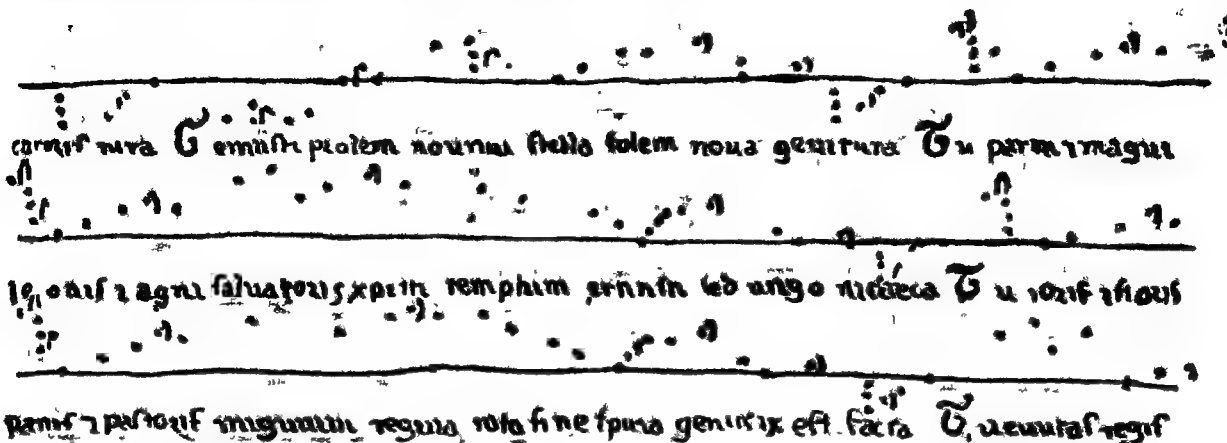 carnis iura Tu emisti prolem nouimus stella solem noua genitura Tu parui ⁊ magni
leonis ⁊ agni saluatoris xpisti templum sed uirgo intacta Tu roris ⁊ floris
panis ⁊ pastoris uirginum regina rosa sine spina genitrix est facta Tu ciuitas regis